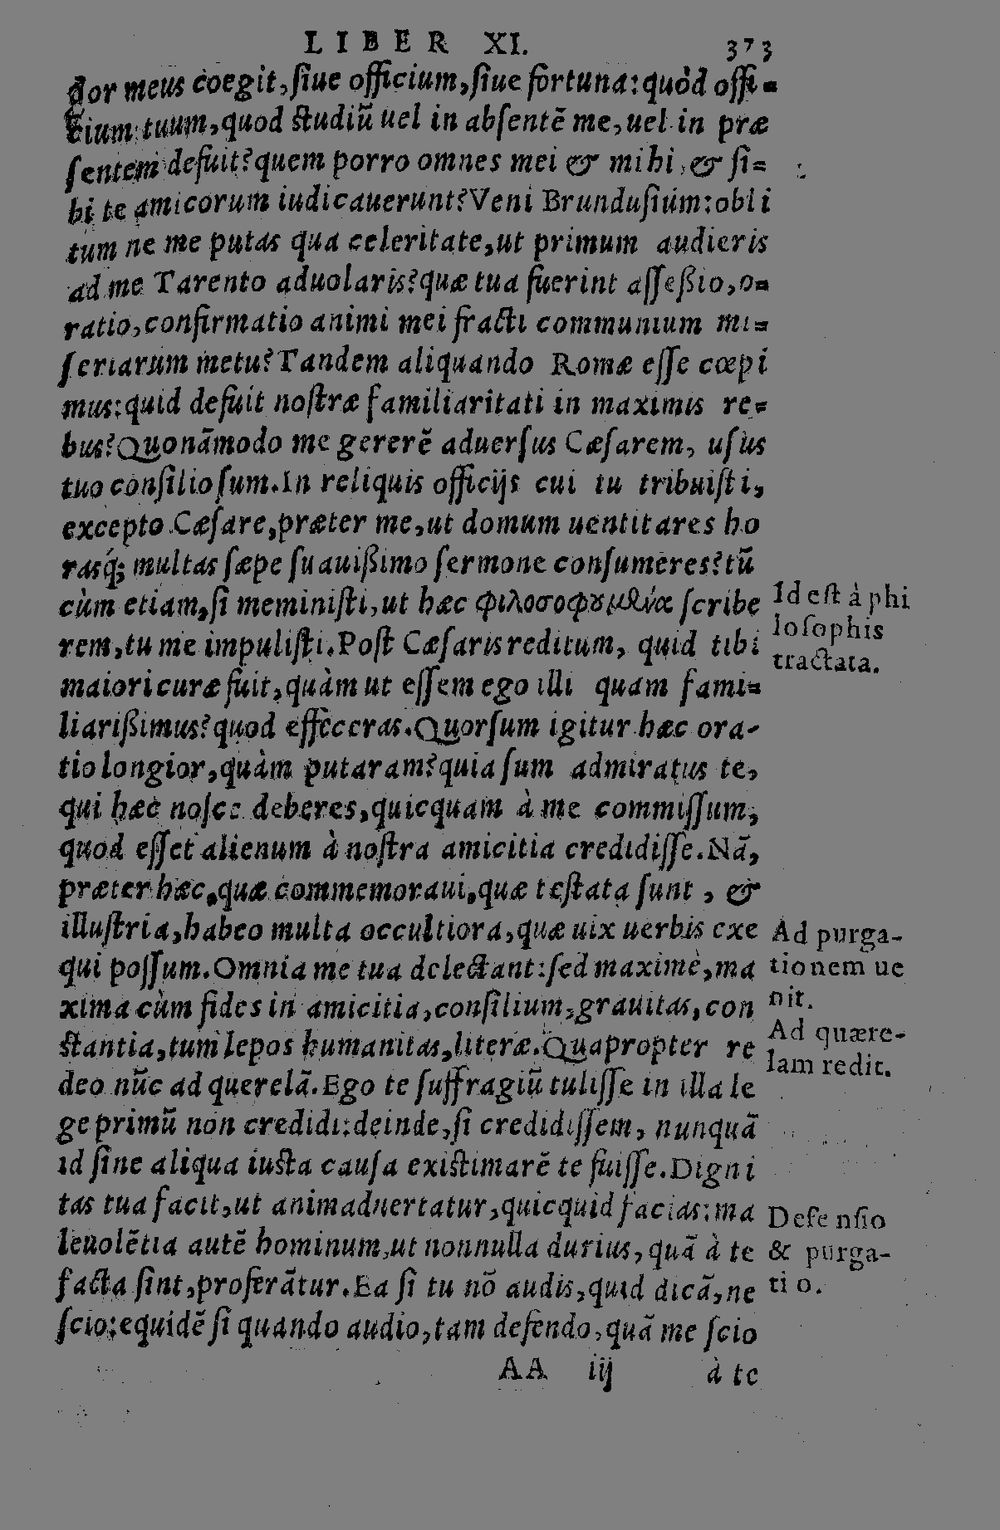 LIBER XI. 373
dor meus coegit, ſiue officium, ſiue fortuna: quòd offi=
cium tuum, quod ſtudiũ uel in abſentẽ me, uel in præ
ſentem defuit? quem porro omnes mei & mihi, & ſi=
bi te amicorum iudicauerunt? Veni Brunduſium: obli
tum ne me putas qua celeritate, ut primum audieris
ad me Tarento aduolaris? quæ tua fuerint aſſeßio, o=
ratio, confirmatio animi mei fracti communium mi=
ſeriarum metu? Tandem aliquando Romæ eſſe cœpi
mus: quid defuit noſtræ familiaritati in maximis re=
bus? Quonãmodo me gererẽ aduerſus Cæſarem, uſus
tuo conſilio ſum. In reliquis officijs cui tu tribuiſti,
excepto Cæſare, præter me, ut domum uentitares ho
rasq́; multas ſæpe ſuauißimo ſermone conſumeres? tũ
cùm etiam, ſi meminiſti, ut hæc φιλοσοφȣμδμα ſcribe
rem, tu me impuliſti. Poſt Cæſaris reditum, quid tibi
maiori curæ fuit, quàm ut eſſem ego illi quam fami=
liarißimus? quod effeceras. Quorſum igitur hæc ora-
tio longior, quàm putaram? quia ſum admiratus te,
qui hæc noſce deberes, quicquam à me commiſſum,
quod eſſet alienum à noſtra amicitia credidiſſe. Nã,
præter hæc, quæ commemoraui, quæ teſtata ſunt, &
illuſtria, habeo multa occultiora, quæ uix uerbis exe
qui poſſum. Omnia me tua delectant: ſed maximè, ma
xima cùm fides in amicitia, conſilium, grauitas, con
ſtantia, tum lepos humanitas, literæ. Quapropter re
deo nũc ad querelã. Ego te ſuffragiũ tuliſſe in illa le
ge primũ non credidi: deinde, ſi credidiſſem, nunquã
id ſine aliqua iuſta cauſa exiſtimarẽ te fuiſſe. Digni
tas tua facit, ut animaduertatur, quicquid facias: ma
leuolẽtia autẽ hominum, ut nonnulla durius, quã à te
facta ſint, proferãtur. Ea ſi tu nõ audis, quid dicã, ne
ſcio: equidẽ ſi quando audio, tam defendo, quã me ſcio
AA iij à te
Id eſt à phi
loſophis
tractata.
Ad purga-
tionem ue
nit.
Ad quære-
lam redit.
Defenſio
& purga-
tio.